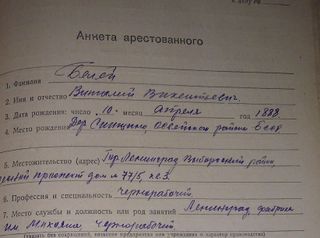 Анкета арестованного
1. Фамилия Белей
2. Имя и отчество Виталий Викентьевич.
3. Дата рождения: число 10 месяц Апреля год 1888
4. Место рождения Дер. района БССР
5. Местожительство (адрес) Гор. Ленинград Выборгский район
дом № 77/5, кв. 3.
6. Профессия и специальность чернорабочий
7. Место службы и должность или род занятий Ленинград фабрика
им. чернорабочий